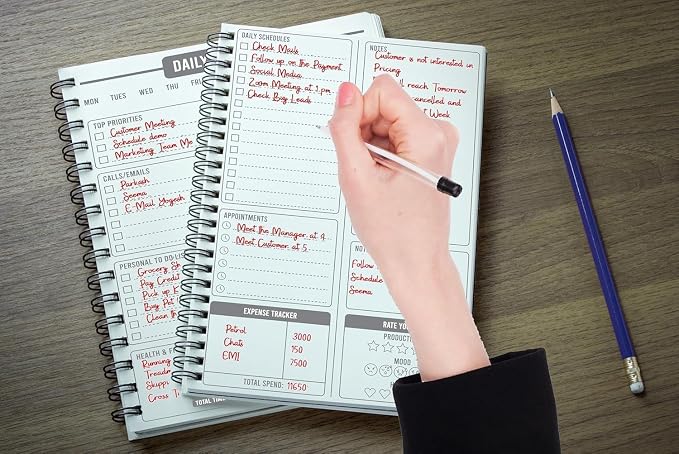 DAILY
MON TUES WED THU FRI
TOP PRIORITIES
Customer Meeting
Schedule demo
Marketing Team Me
CALLS/EMAILS
Parkash
Seema
E-Mail Yogesh
PERSONAL TO DO LI
Grocery
Pay Credit
Pick up
Buy Pet
Clean
HEALTH &
Running
Cross
TOTAL TIME
DAILY SCHEDULES
Check Mails
Follow up on the Payment
Social Media
Zoom Meeting at 1 pm
Check Big Leads
APPOINTMENTS
Meet the Manager at 4
Meet Customer at 5
EXPENSE TRACKER
Petrol 3000
Chats 150
EMI! 7500
TOTAL SPEND: 11650
NOTES
Customer is not interested in
Pricing
reach Tomorrow
cancelled and
Week
Follow
Schedule
Seema
RATE YOU
PRODUC
MOOD